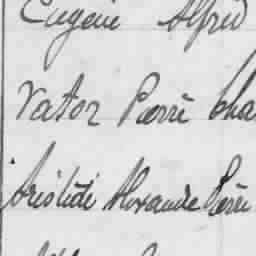 Eugène Alfred
Nator Pierre Cha
Aristide Alexandre Pierre